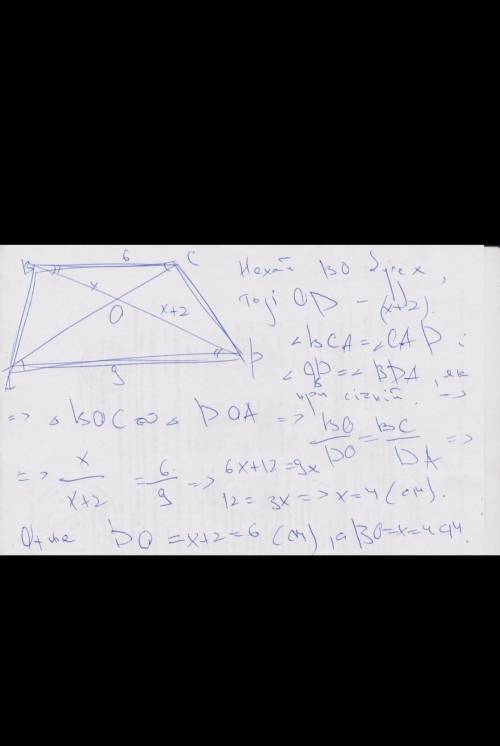 B 6 C
x
O x+2
A 9 D
Нехай BO буде x,
тоді OD – (x+2).
∠BCA = ∠CAD і
∠ = ∠BDA, як
при січній. =>
=> △BOC ∞ △DOA => BO/DO = BC/DA =>
=> x/(x+2) = 6/9 => 6x+12=9x
12 = 3x => x=4 (см).
Отже DO = x+2 = 6 (см), а BO=x=4 см.